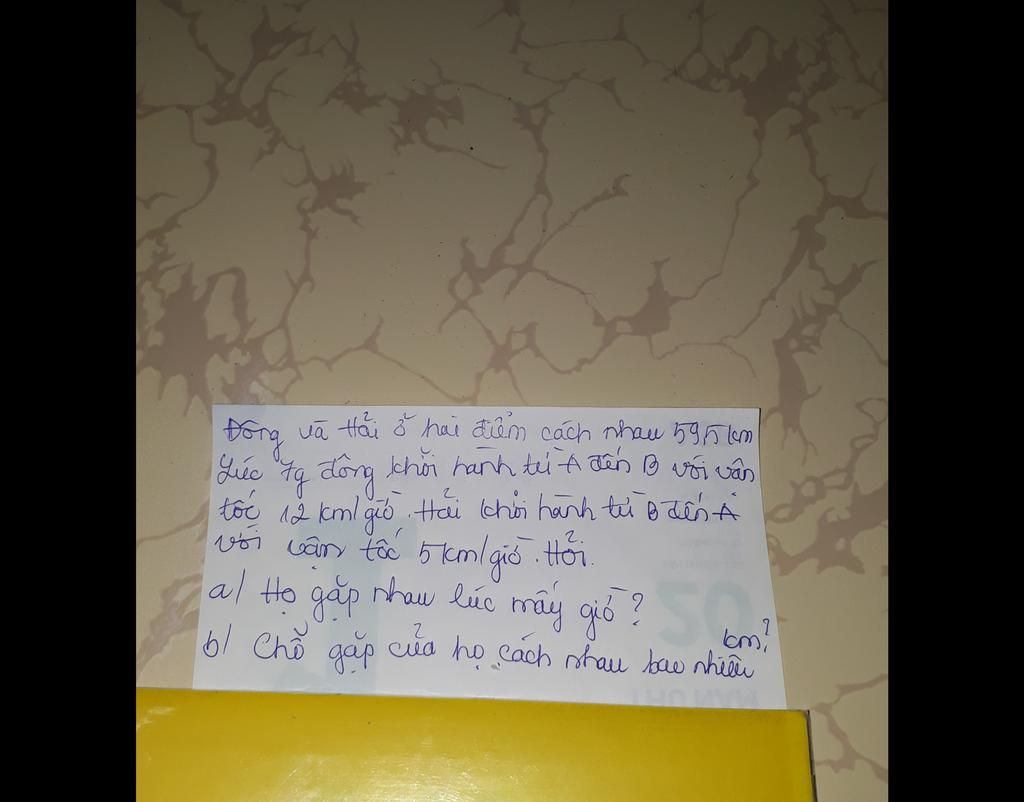 Đông và Hải ở hai điểm cách nhau 59,5 km
Lúc 7g đông khởi hành từ A đến B với vận
tốc 12 km/giờ. Hải khởi hành từ B đến A
với vận tốc 5 km/giờ. Hỏi.
a/ Họ gặp nhau lúc mấy giờ?
b/ Chỗ gặp của họ cách nhau bao nhiêu km?
20